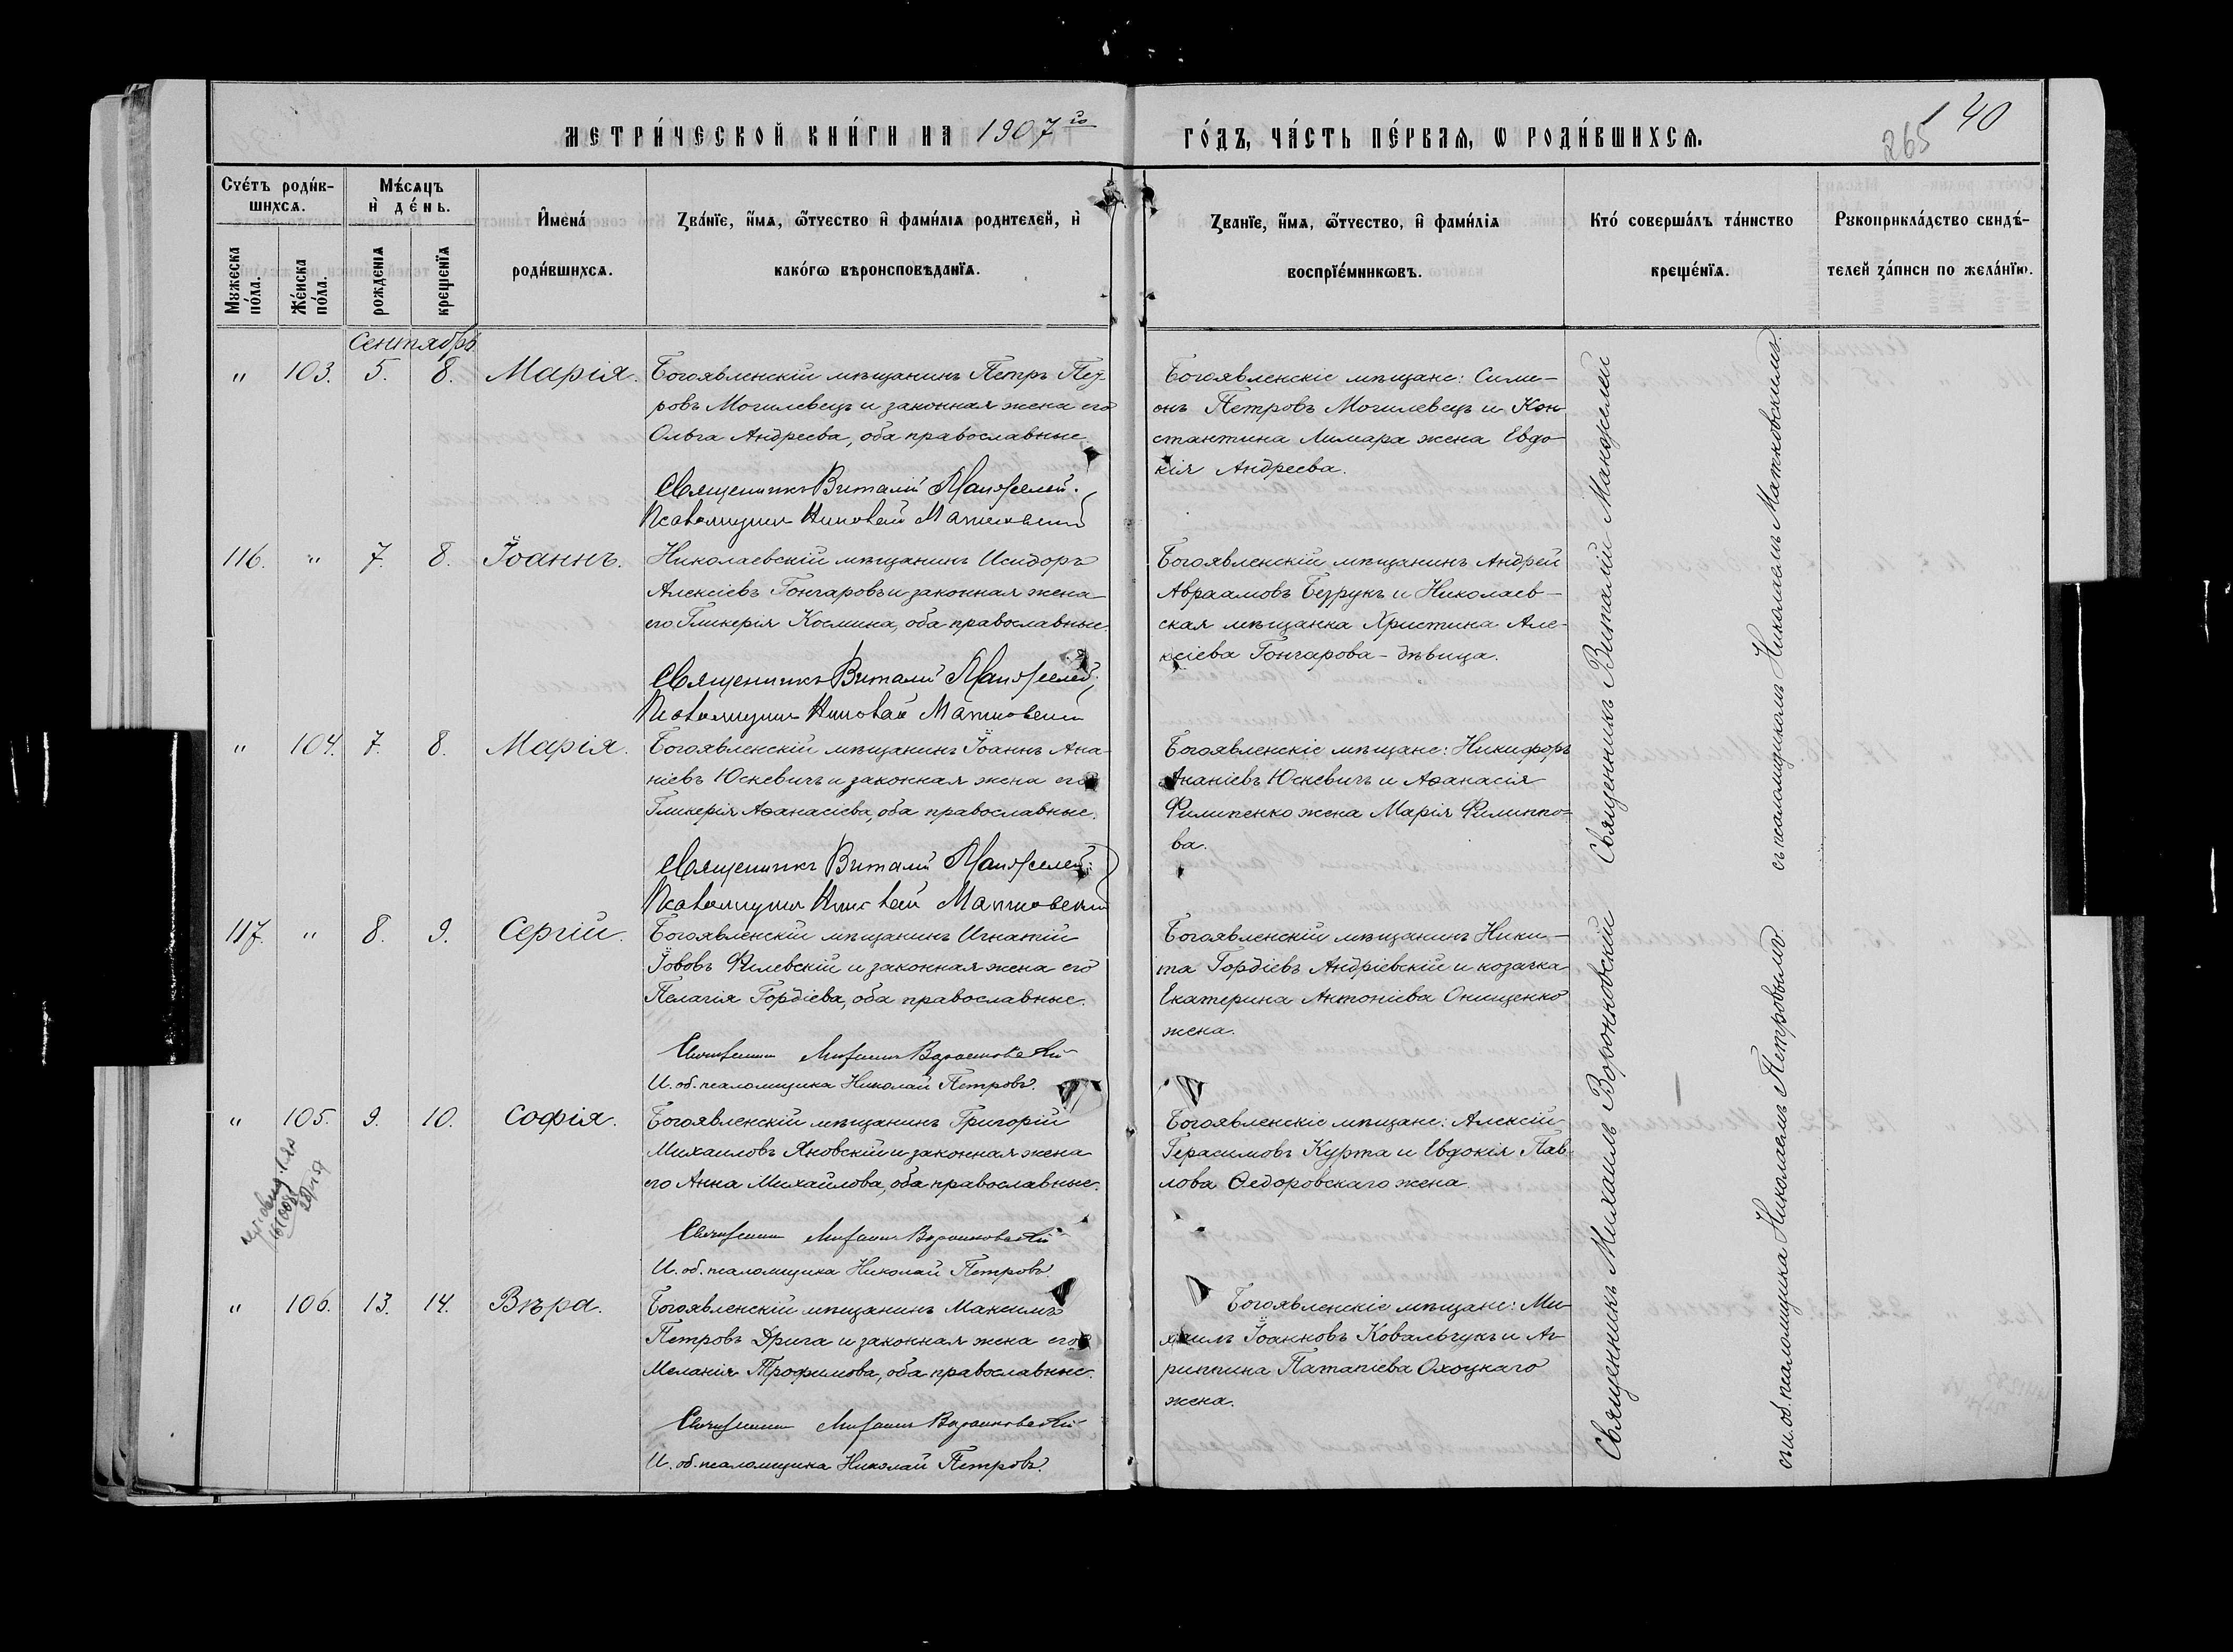 МЕТРИ́ЧЕСКОЙ КНИ́ГИ НА 1907го
ГО́ДЪ, ЧА́СТЬ ПЕ́РВАѦ, Ѡ РОДИ́ВШИХСѦ.
265
40
Сче́тъ роди́в-
шихсѧ.
Мꙋжеска
по́ла.
Же́нска
по́ла.
Мѣ́сѧцъ
и҆ де́нь.
рожденїѧ
крещенїѧ
И҆мена́
роди́вшихсѧ.
Зва́нїе, и҆́мѧ, ѻ҆́тчество и҆ фами́лїѧ родителей, и҆
како́гѡ вѣроисповѣданїѧ.
Зва́нїе, и҆́мѧ, ѻ҆́тчество, и҆ фами́лїѧ
воспрїе́мникѡвъ.
Кто́ соверша́лъ та́инство
креще́нїѧ.
Рꙋкоприкла́дство свидѣ́-
телей за́писи по жела́нїю.
Сентябрь
" 103. 5. 8. Марія.
Богоявленскій мѣщанинъ Петръ Пет-
ровъ Могилевецъ и законная жена его
Ольга Андреева, оба православные
Священникъ Виталій Манжелей.
Псаломщикъ Николай Матковскій
Богоявленскіе мѣщане: Симе-
онъ Петровъ Могилевецъ и Кон
стантина Лимара жена Евдо-
кія Андреева.
116. " 7. 8. Іоаннъ.
Николаевскій мѣщанинъ Исидоръ
Алексіевъ Гончаровъ и законная жена
его Гликерія Космина, оба православные.
Священникъ Виталій Манжелей
Псаломщикъ Николай Матковскій
Богоявленскій мѣщанинъ Андрей
Авраамовъ Безрукъ и Николаев-
ская мѣщанка Христина Але-
ксіева Гончарова - дѣвица.
" 104. 7. 8. Марія.
Богоявленскій мѣщанинъ Іоаннъ Ана-
ніевъ Юскевичъ и законная жена его
Гликерія Аѳанасіева, оба православные.
Священникъ Виталій Манжелей
Псаломщикъ Николай Матковскій
Богоявленскіе мѣщане: Никифоръ
Ананіевъ Юскевичъ и Аѳанасія
Филипенко жена Марія Филиппо-
ва.
117. " 8. 9. Сергій.
Богоявленскій мѣщанинъ Игнатій
Іововъ Филевскій и законная жена его
Пелагія Гордіева, оба православные.
Священникъ Михаилъ Воронновскій
И. об. псаломщика Николай Петровъ.
Богоявленскій мѣщанинъ Ники-
та Гордіевъ Андріевскій и козачка
Екатерина Антоніева Онищенко
жена.
" 105. 9. 10. Софія.
Богоявленскій мѣщанинъ Григорій
Михаиловъ Яновскій и законная жена
его Анна Михайлова, оба православные.
Священникъ Михаилъ Воронновскій
И. об. псаломщика Николай Петровъ.
Богоявленскіе мѣщане: Алексій
Герасимовъ Курта и Евдокія Пав
лова Ѳедоровскаго жена.
" 106. 13. 14. Вѣра.
Богоявленскій мѣщанинъ Максимъ
Петровъ Дрига и законная жена его
Меланія Трофимова, оба православные.
Священникъ Михаилъ Воронновскій
И. об. псаломщика Николай Петровъ.
Богоявленскіе мѣщане: Ми-
хаилъ Іоанновъ Ковальчукъ и Аг-
риппина Патапіева Охоцкаго
жена.
Священникъ Виталій Манжелей
съ псаломщикомъ Николаемъ Матковскимъ.
Священникъ Михаилъ Воронновскій
съ и. об. псаломщика Николаемъ Петровымъ.